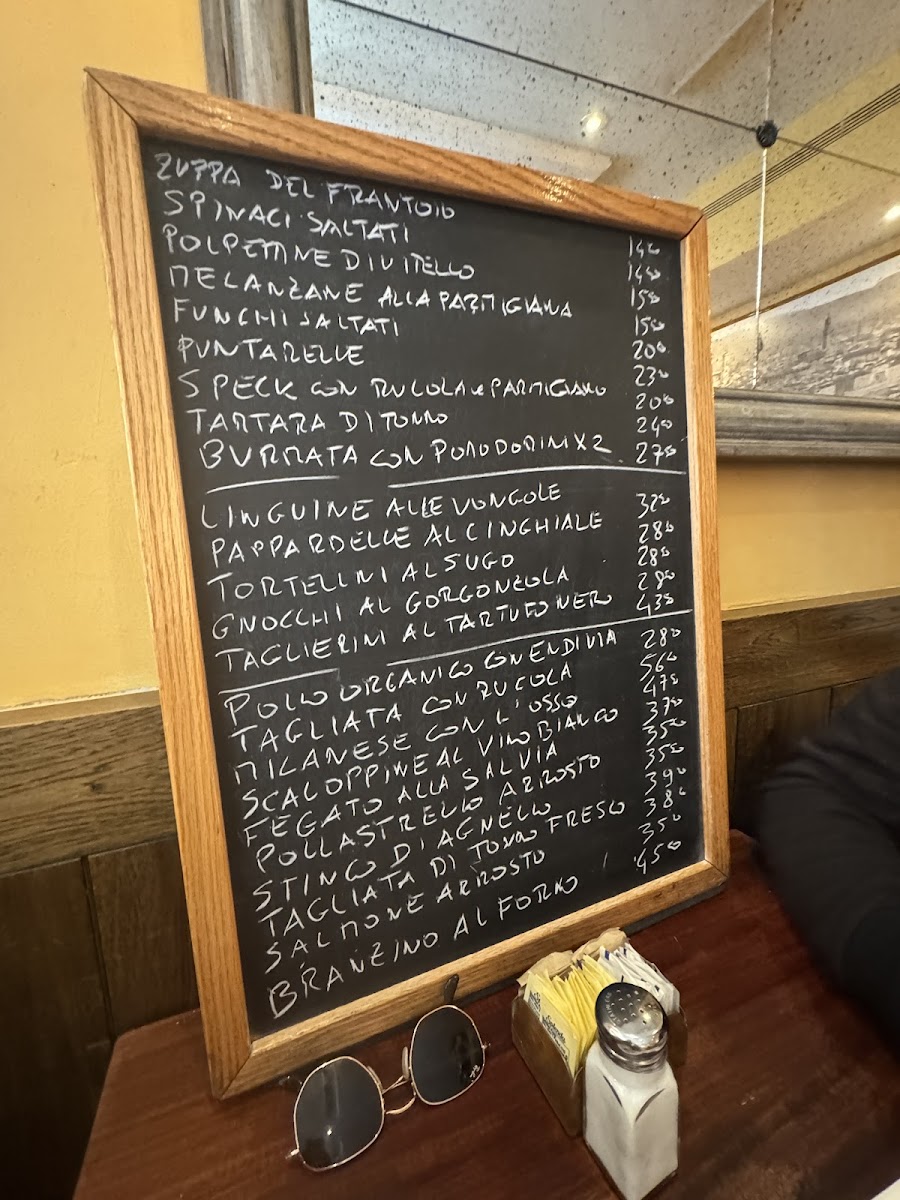 ZUPPA DEL FRANTOIO 140
SPINACI SALTATI 140
POLPETTINE DI VITELLO 150
MELANZANE ALLA PARMIGIANA 150
FUNGHI SALTATI 200
PUNTARELLE 230
SPECK CON RUCOLA e PARMIGIANO 200
TARTARA DI TONNO 240
BURRATA CON POMODORINI X 2 270
LINGUINE ALLE VONGOLE 320
PAPPARDELLE AL CINGHIALE 280
TORTELLINI AL SUGO 280
GNOCCHI AL GORGONZOLA 280
TAGLIERINI AL TARTUFO NERO 430
POLLO ORGANICO CON ENDIVIA 280
TAGLIATA CON RUCOLA 560
MILANESE CON L'OSSO 470
SCALOPPINE AL VINO BIANCO 370
FEGATO ALLA SALVIA 350
POLLASTRELLO ARROSTO 350
STINCO D'AGNELLO 390
TAGLIATA DI TONNO FRESCO 380
SALMONE ARROSTO 350
BRANZINO AL FORNO 450